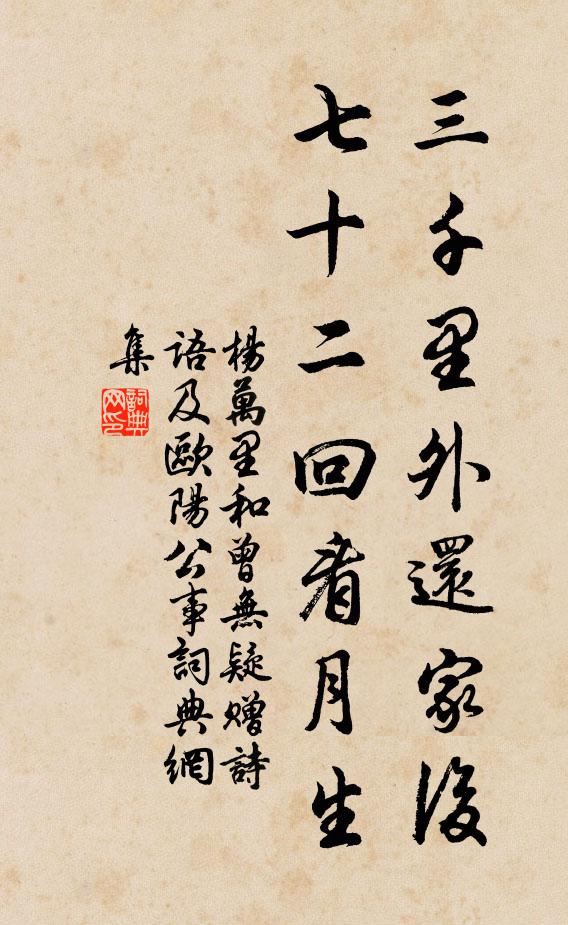 三千里外還家後
七十二回看月生
楊萬里和曾無疑贈詩
語及歐陽公事詞典網
集
詞典
网印